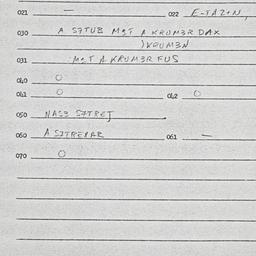 021 — 022 E-TAZIN,
030 A S7TUB M2T A KRUM3R DAX
)KRUM3N
031 M2T A KRUM3R FUS
040 O
041 O 042 O
050 NAS3 S7TREJ
060 A S7TRENAR 061 —
070 O